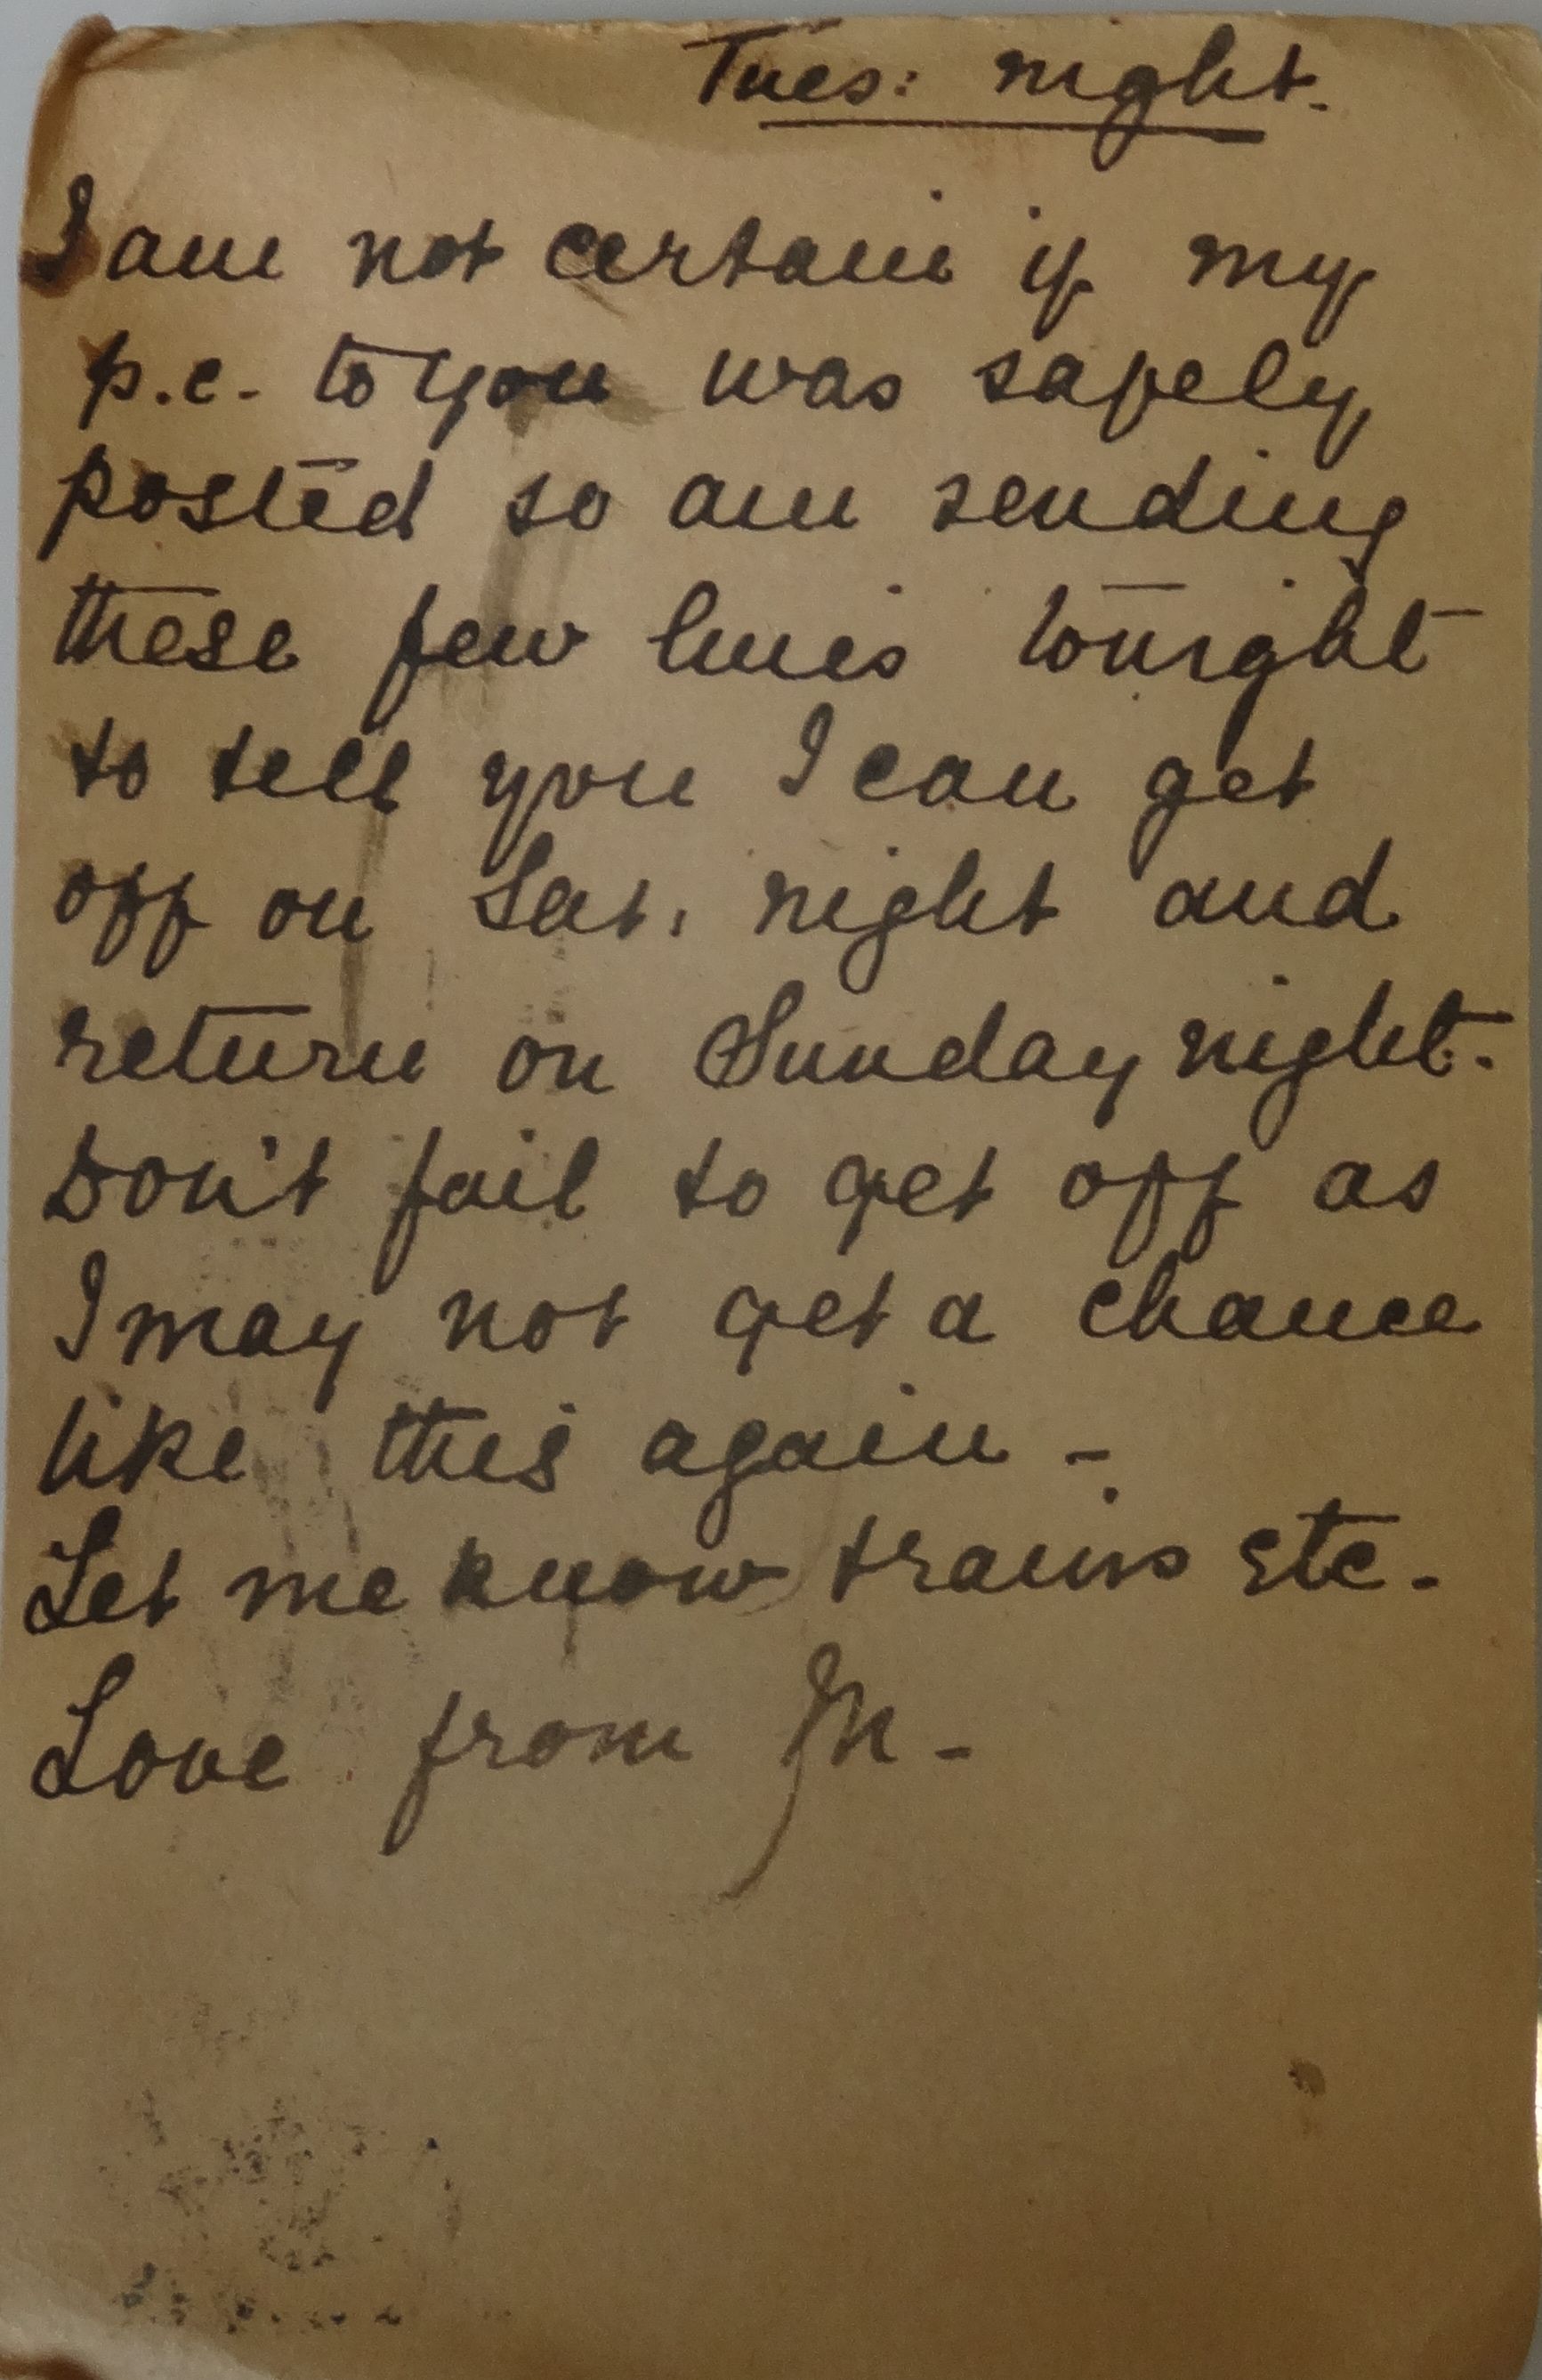 Tues: night.
I am not certain if my
p.c. to you was safely
posted so am sending
these few lines tonight
to tell you I can get
off on Sat: night and
return on Sunday night.
Don't fail to get off as
I may not get a chance
like this again -
Let me know trains etc.
Love from M -